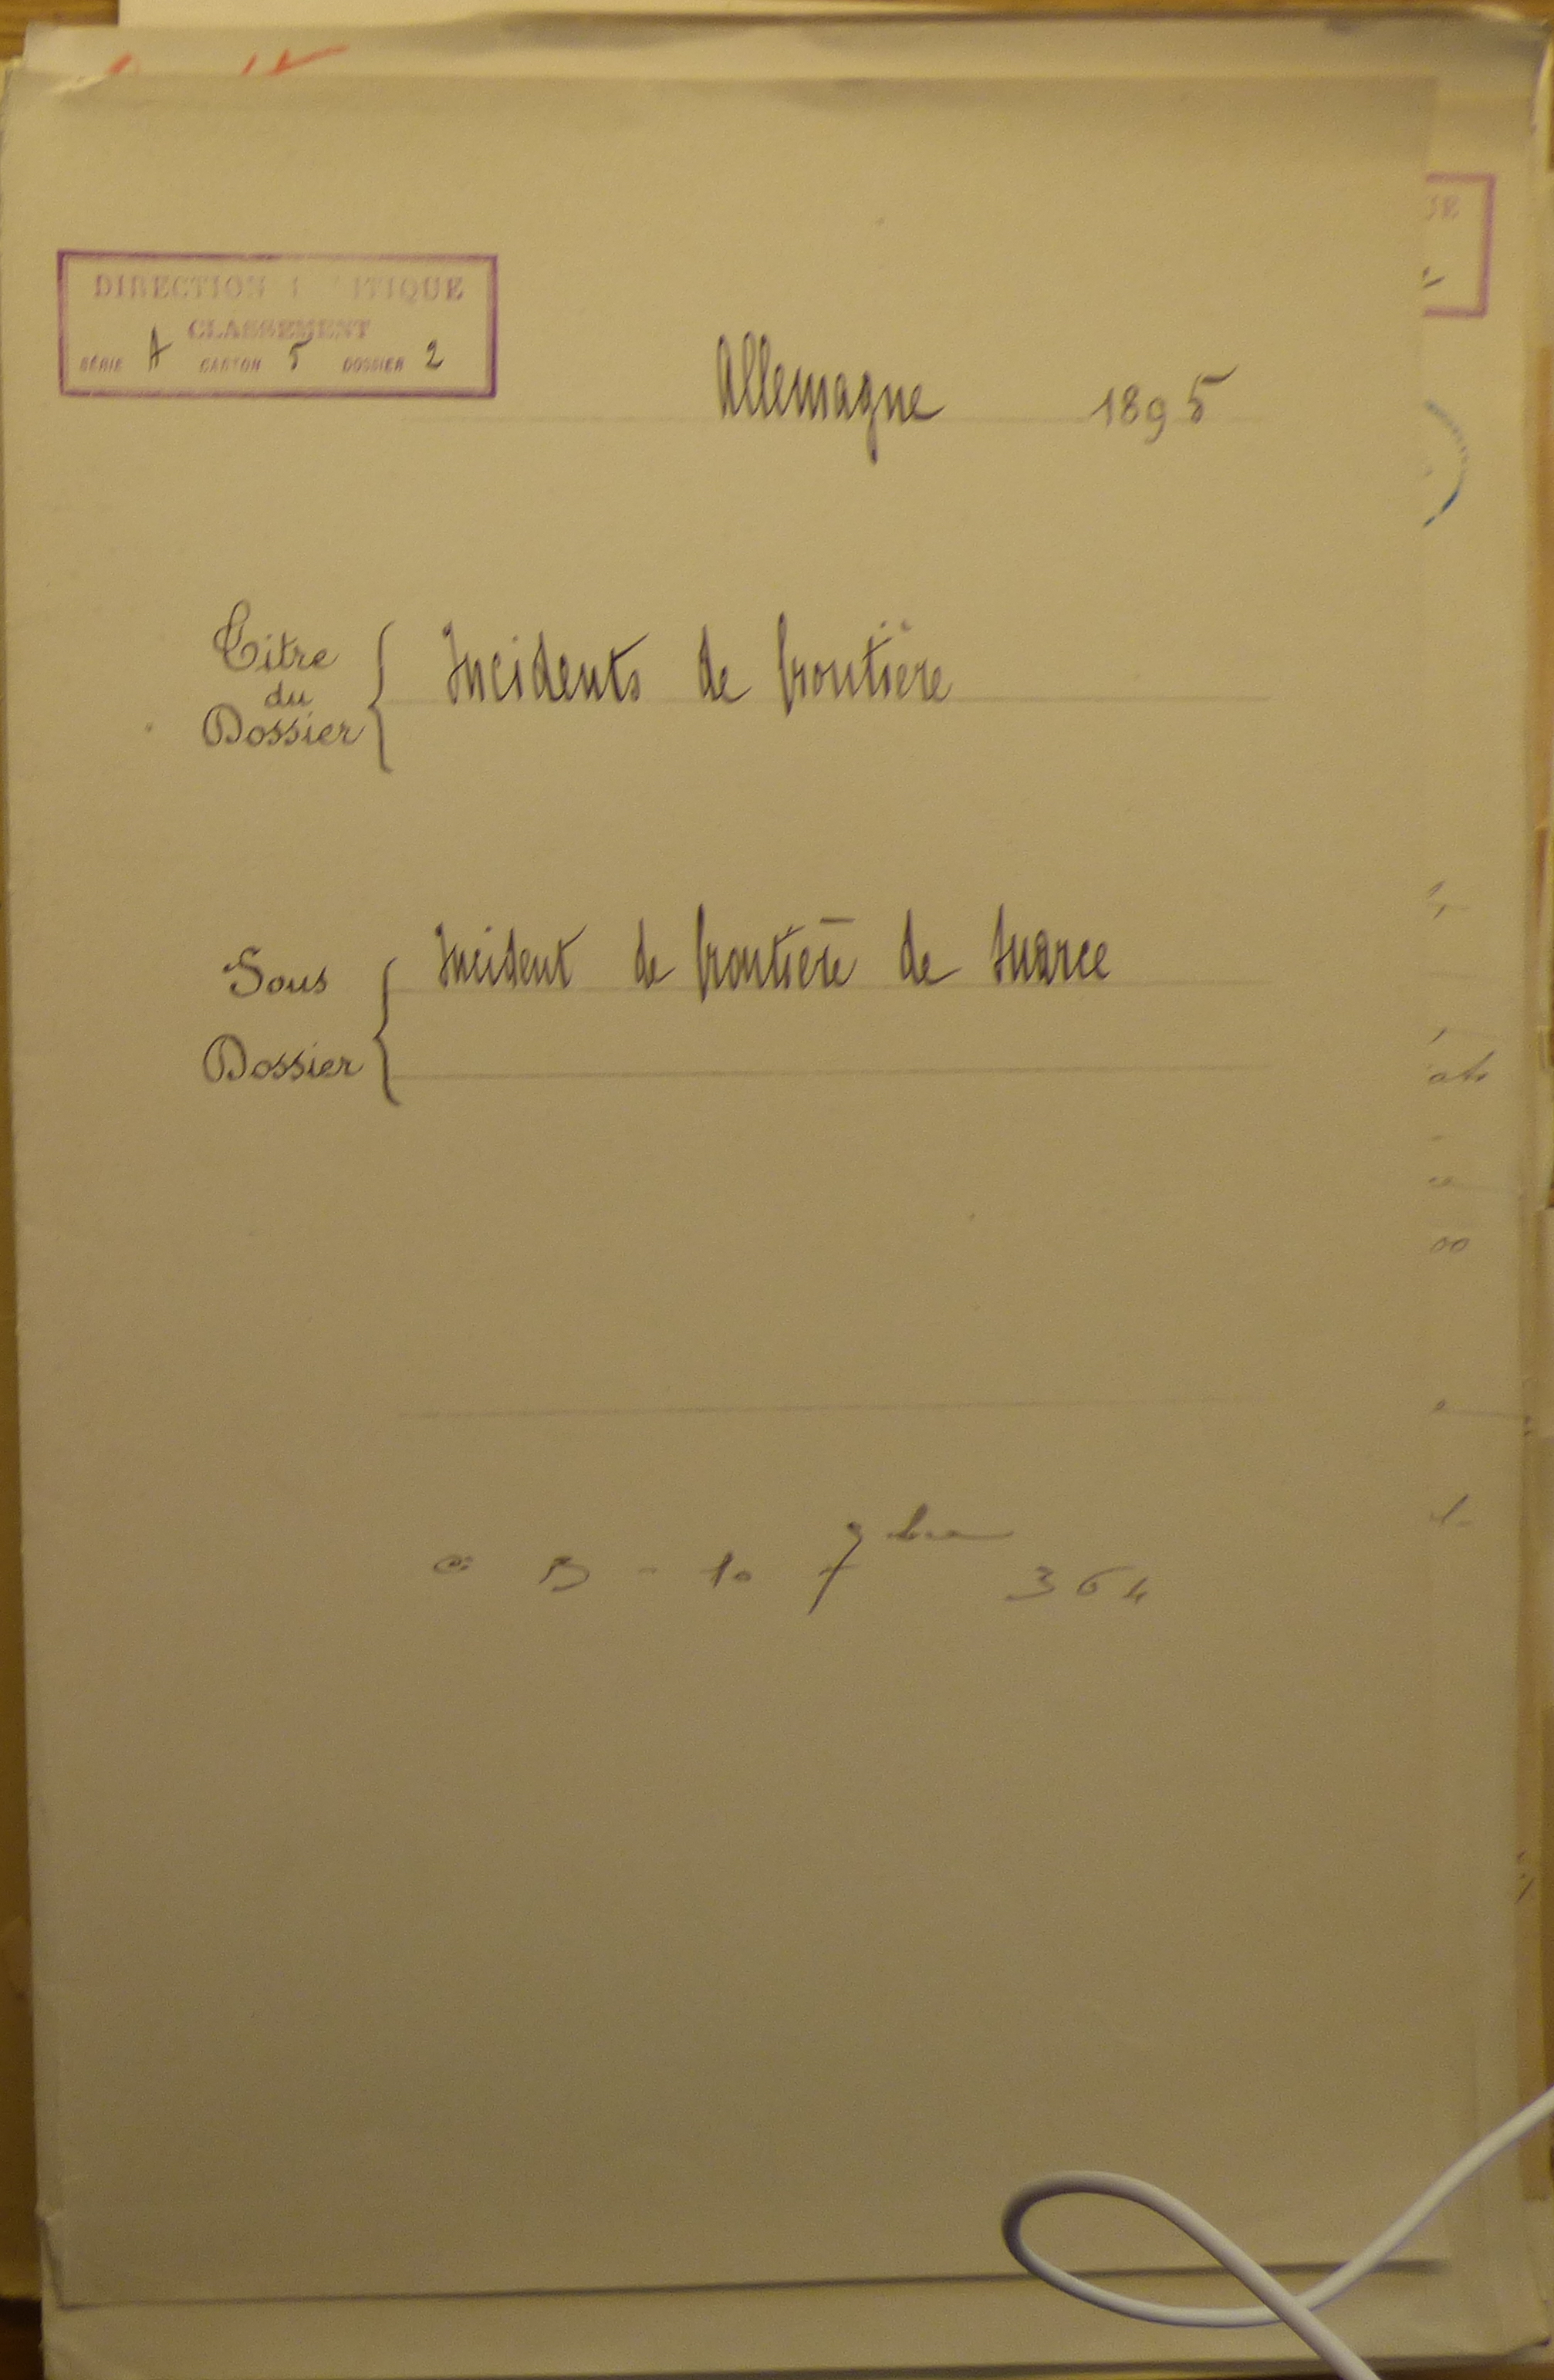 DIRECTION ITIQUE
CLASSEMENT
SÉRIE A CARTON 5 DOSSIER 2
Allemagne 1895
Titre du Dossier { Incidents de frontière
Sous Dossier { Incident de frontière de Suarce
B - 10 7bre 364